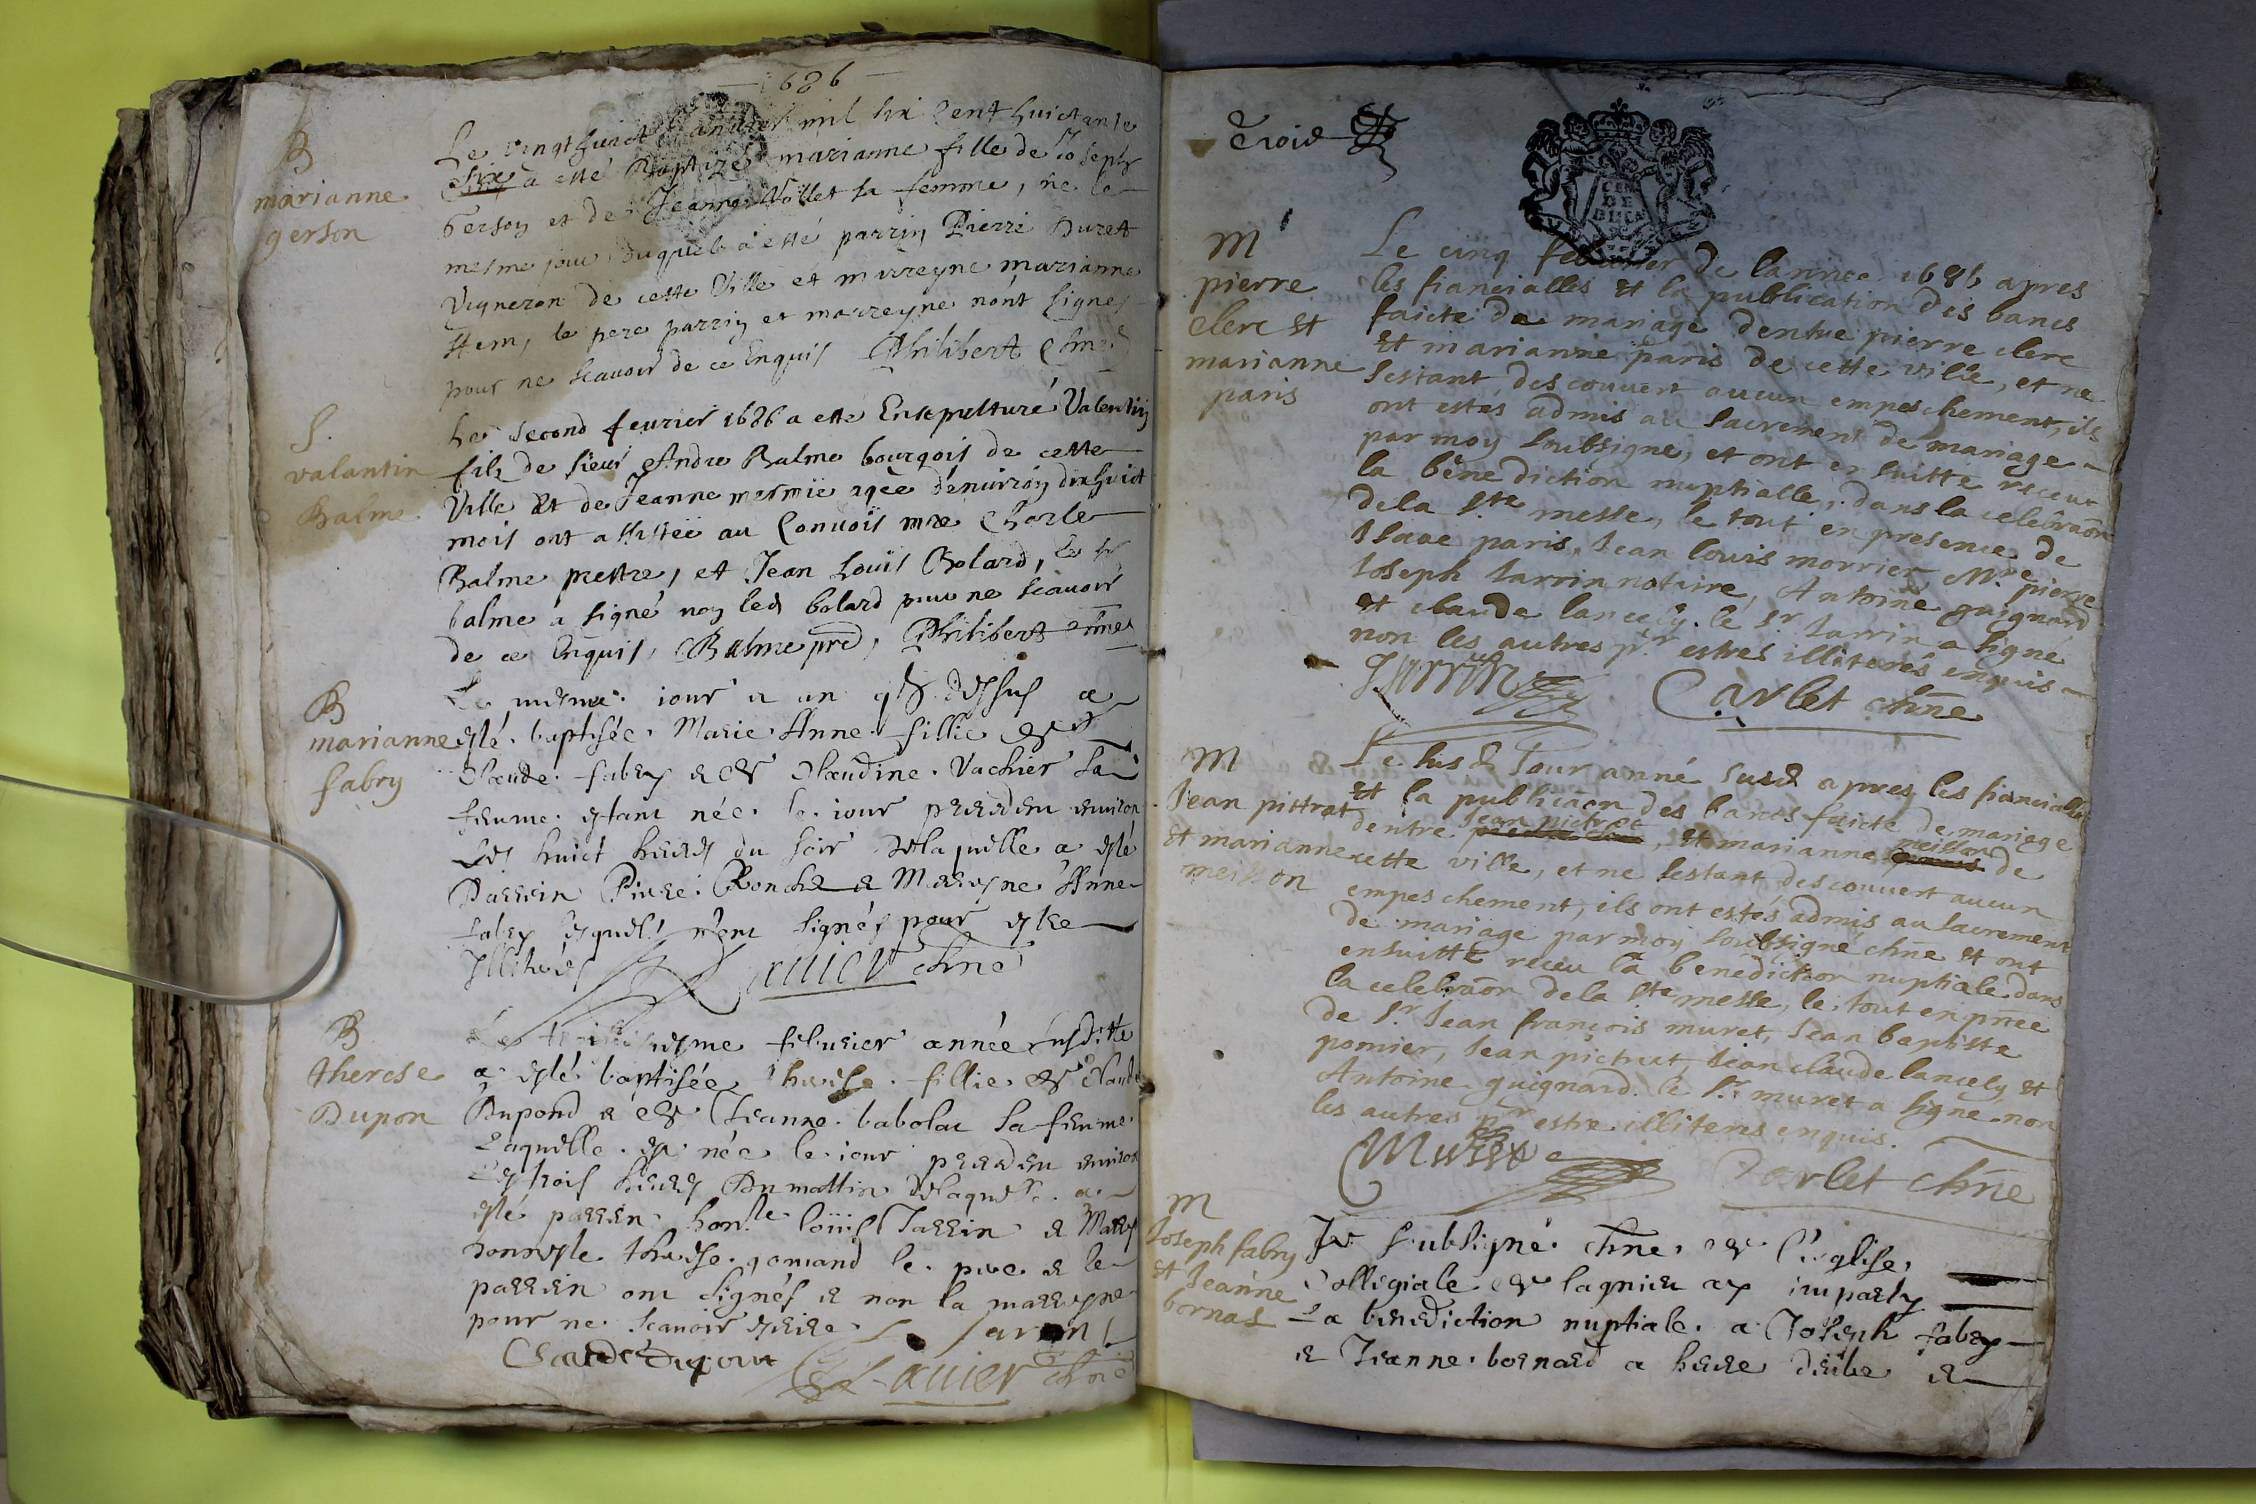 1686
B
marianne
gerson
Le vingt huict mil six cent huictante
six a esté Baptizé marianne fille de Joseph
Gerson et de Jeanne Vollet sa femme, né le
mesme jour, duquel a esté parrin Pierre Duret
vigneron de cette Ville et marreyne marianne
le pere parrin et marreyne n'ont signes
pour ne scavoir de ce Enquis Philibert chne
S.
valantin
Balme
Le second feurier 1686 a esté Ensepulturé Valentin
fils de sieur Andre Balme bourgois de cette
Ville Et de Jeanne mermïe agèe d'enuiron dixhuict
mois ont assistée au Convoïs mre Charle
Balme prestre, et Jean Louïs Bolard, le sr
balme a signé non led bolard pour ne scauoir
de ce Enquis, Balme pre, Philibert chne
B
marianne
fabry
Le mesme iour et an q dessus a
esté baptisée Marie Anne fillie de
Claude fabry et de Claudine Vachier sa
femme estant née le iour precedent enuiron
les huict heures du soir de laquelle a esté
Parrein Pierre et Marreyne Anne
fabry lesquels n'ont signés pour estre
Illiterés Lauier chne
B
therese
Dupon
Le troisiesme feburier année susditte
a esté baptisée therese fillie de Claude
Dupond et de Jeanne babolat sa femme
Laquelle est née le iour precedent enuiron
les trois heures Du mattin de laquelle a
esté parrein honble loüis Jarrin et Marr
donnesle therese gomand le pere et le
parrein ont signés et non la marreyne
pour ne scauoir escrire
L. Jarrin
Claude Dupont Lauier chne
Trois
CEN
DE
M
pierre
clerc et
marianne
paris
Le cinq feburier de lannee 1686 apres
les fiancialles et la publication des bancs
faicte de mariage dentre pierre clerc
et marianne paris de cette ville, et ne
sestant descouuert aucun empeschement, ils
ont estés admis au sacrement de mariage
par moy soubsigne, et ont en suitte receut
la bènediction nuptialle, dans la celebraon
de la ste messe, le tout en presence de
Isaac paris, Jean louis morrier, Mre pierre
Joseph Jarrin notaire, Antoine guignard
et claude lancely. le sr Jarrin a signé
non les autres pr estres illiterés enquis
Jarrin Carlet chne
M
Jean pittrat
et marianne
meisson
Le susd Jour anné susd apres les fiancialles
et la publicaon des bancs faicte de mariage
dentre Jean pictrat, et marianne meisson de
cette ville, et ne sestant descouuert aucun
empeschement, ils ont estés admis au sacrement
de mariage par moy soubsigné chne et ont
ensuitte receu la benediction nuptiale dans
la celebraon de la ste messe, le tout en pnce
de sr Jean françois muret, Jean baptiste
pomier, Jean pictrat, Jean claude lancely et
Antoine guignard. le sr muret a signe non
les autres pr estre illiteres enquis.
Muret Carlet chne
M
Joseph fabry
et Jeanne
bornas
Je soubsigné chne de l'eglise
Collegiale de lagnieu ay imparty
La benediction nuptiale a Joseph fabry
et Jeanne bornard a heure deube et